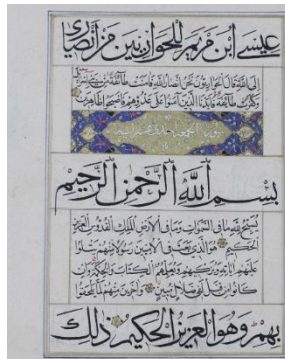 عيسى ابن مريم للحواريين من أنصاري
إلى الله قال الحواريون نحن أنصار الله فآمنت طائفة من بني إسرائيل
وكفرت طائفة فأيدنا الذين آمنوا على عدوهم فأصبحوا ظاهرين
سورة الجمعة احدى عشر آية
بسم الله الرحمن الرحيم
يسبح لله ما في السموات وما في الأرض الملك القدوس العزيز
الحكيم هو الذي بعث في الأميين رسولا منهم يتلوا
عليهم آياته ويزكيهم ويعلمهم الكتاب والحكمة وإن
كانوا من قبل لفي ضلال مبين وآخرين منهم لما يلحقوا
بهم وهو العزيز الحكيم ذلك